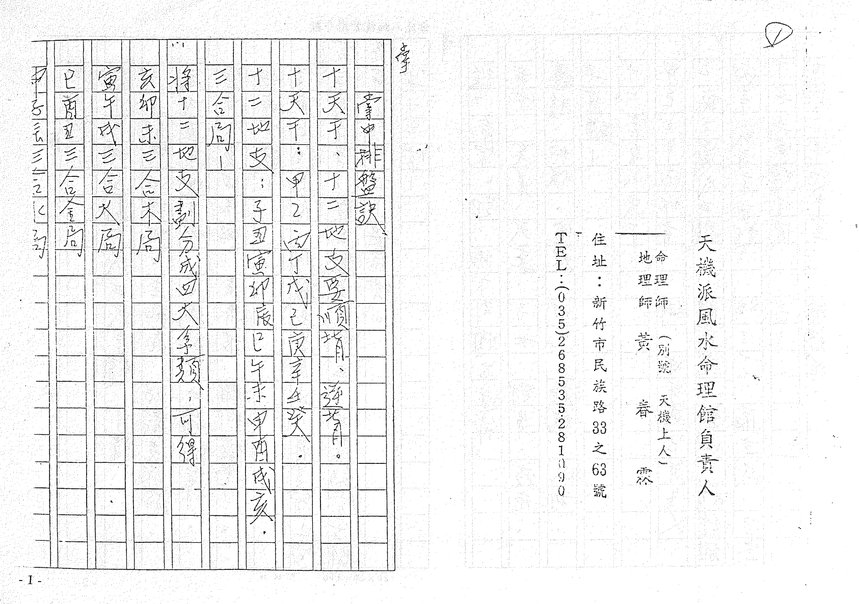 1
天機派風水命理館負責人
命理師
地理師
(別號 天機上人)
黃春霖
住址：新竹市民族路33之63號
TEL:(035)268535·281090
掌
掌中排盤訣
十天干、十二地支要順背、逆背。
十天干：甲乙丙丁戊己庚辛壬癸．
十二地支：子丑寅卯辰巳午未申酉戌亥．
三合局—
將十二地支劃分成四大年類，可得
亥卯未三合木局
寅午戌三合火局
巳酉丑三合金局
申子辰三合水局
-1-